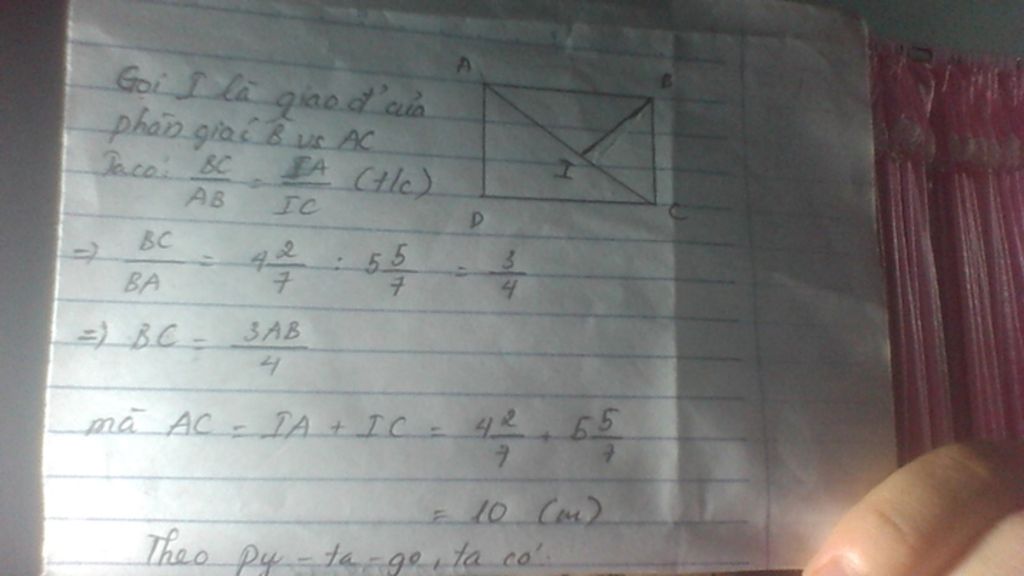 A B
Gọi I là giao đ' của
phân giác B vs AC
Ta có: BC/AB = IA/IC (t/c)
I
D C
=> BC/BA = 4 2/7 : 5 5/7 = 3/4
=> BC = 3AB/4
mà AC = IA + IC = 4 2/7 + 5 5/7
= 10 (m)
Theo py-ta-go, ta có: